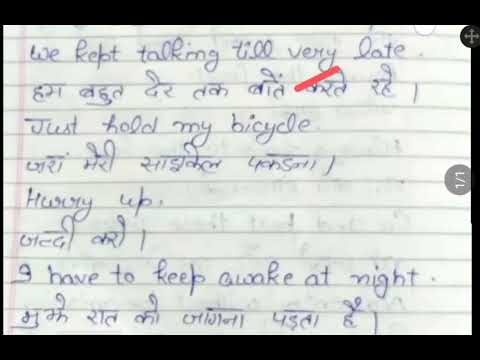 We kept talking till very late.
हम बहुत देर तक बातें करते रहे।
Just hold my bicycle.
जरा मेरी साइकिल पकडना।
Hurry up.
जल्दी करो।
I have to keep awake at night.
मुझे रात को जागना पड़ता है।
1/1